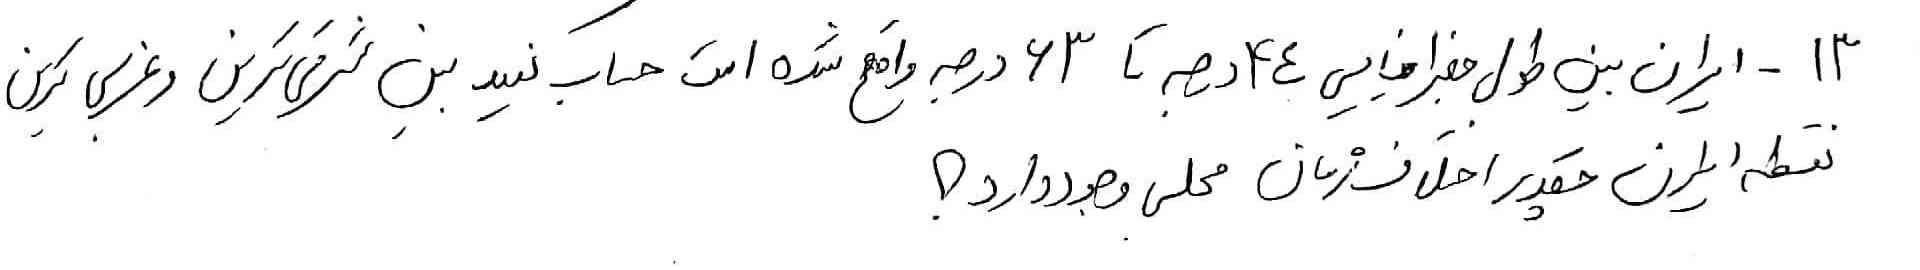 ۱۳ - ایران بین طول جغرافیایی ۴۴ درجه تا ۶۳ درجه واقع شده است حساب کنید بین شرقی ترین و غربی ترین
نقطه ایران چقدر اختلاف زمان محلی وجود دارد؟